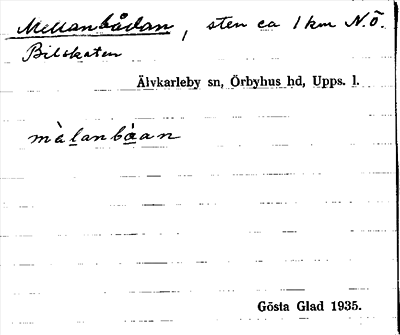 Mellanbådan, sten ca 1 km N.Ö.
Bilskaten
Älvkarleby sn, Örbyhus hd, Upps. l.
màlanbàan
Gösta Glad 1935.